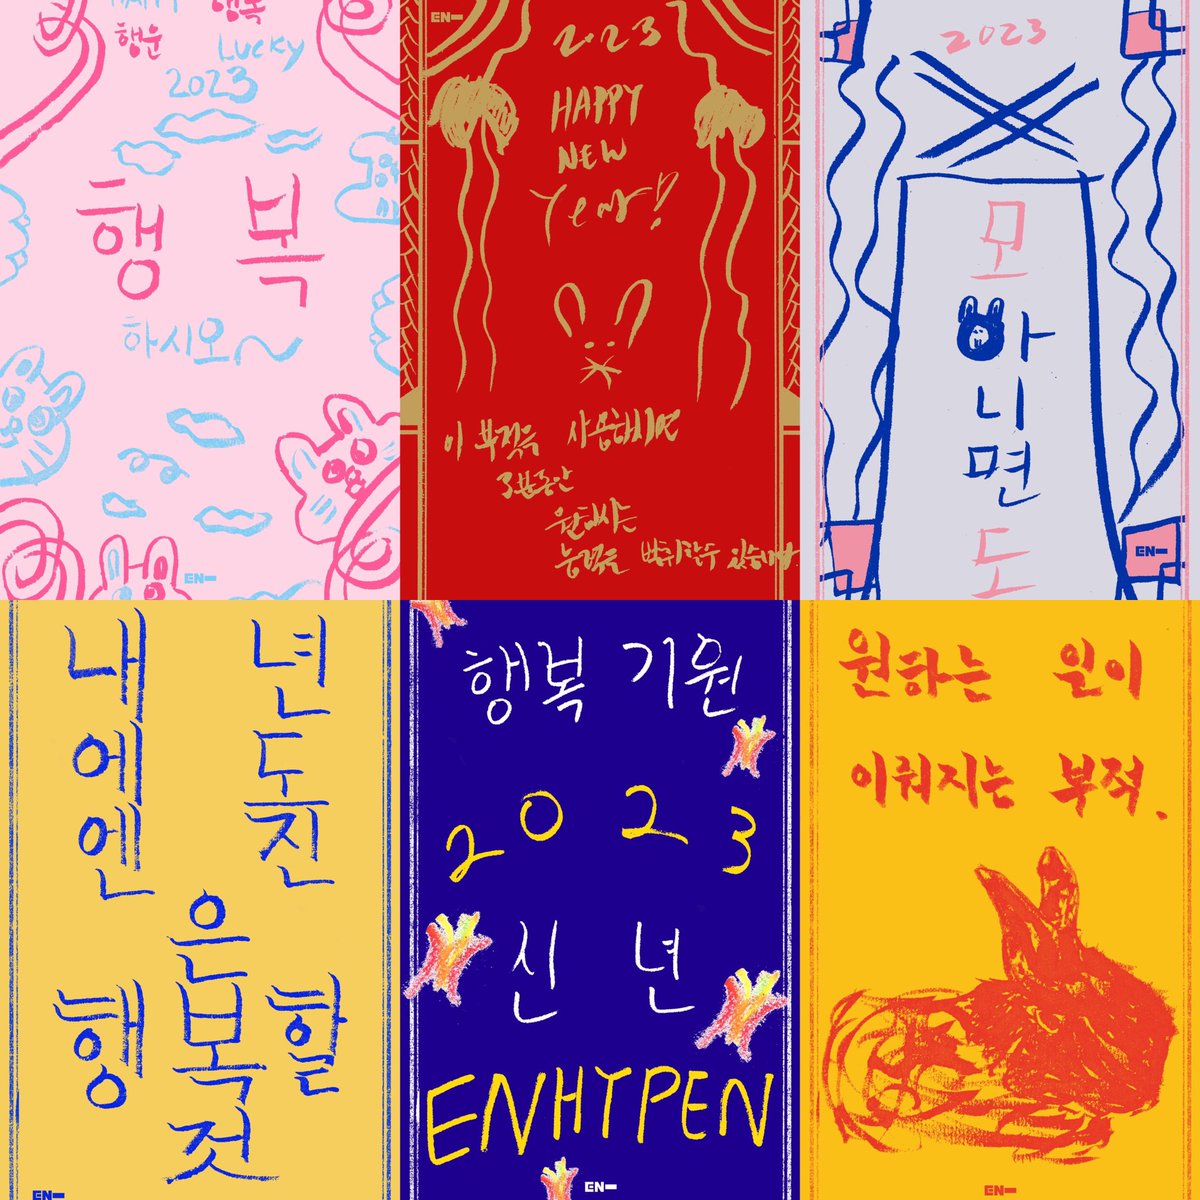 행복
행운
LUCKY
2023
행복
하시오~
EN-
EN-
2023
HAPPY
NEW
Year!
이 부적을 사용하시면
3분동안
원하시는
능력을 발휘할수 있습니다.
2023
모
아
니
면
도
EN-
내년
에도
엔진
은
행복할
것
EN-
행복 기원
2023
신년
ENHYPEN
EN-
원하는 일이
이뤄지는 부적.
EN-